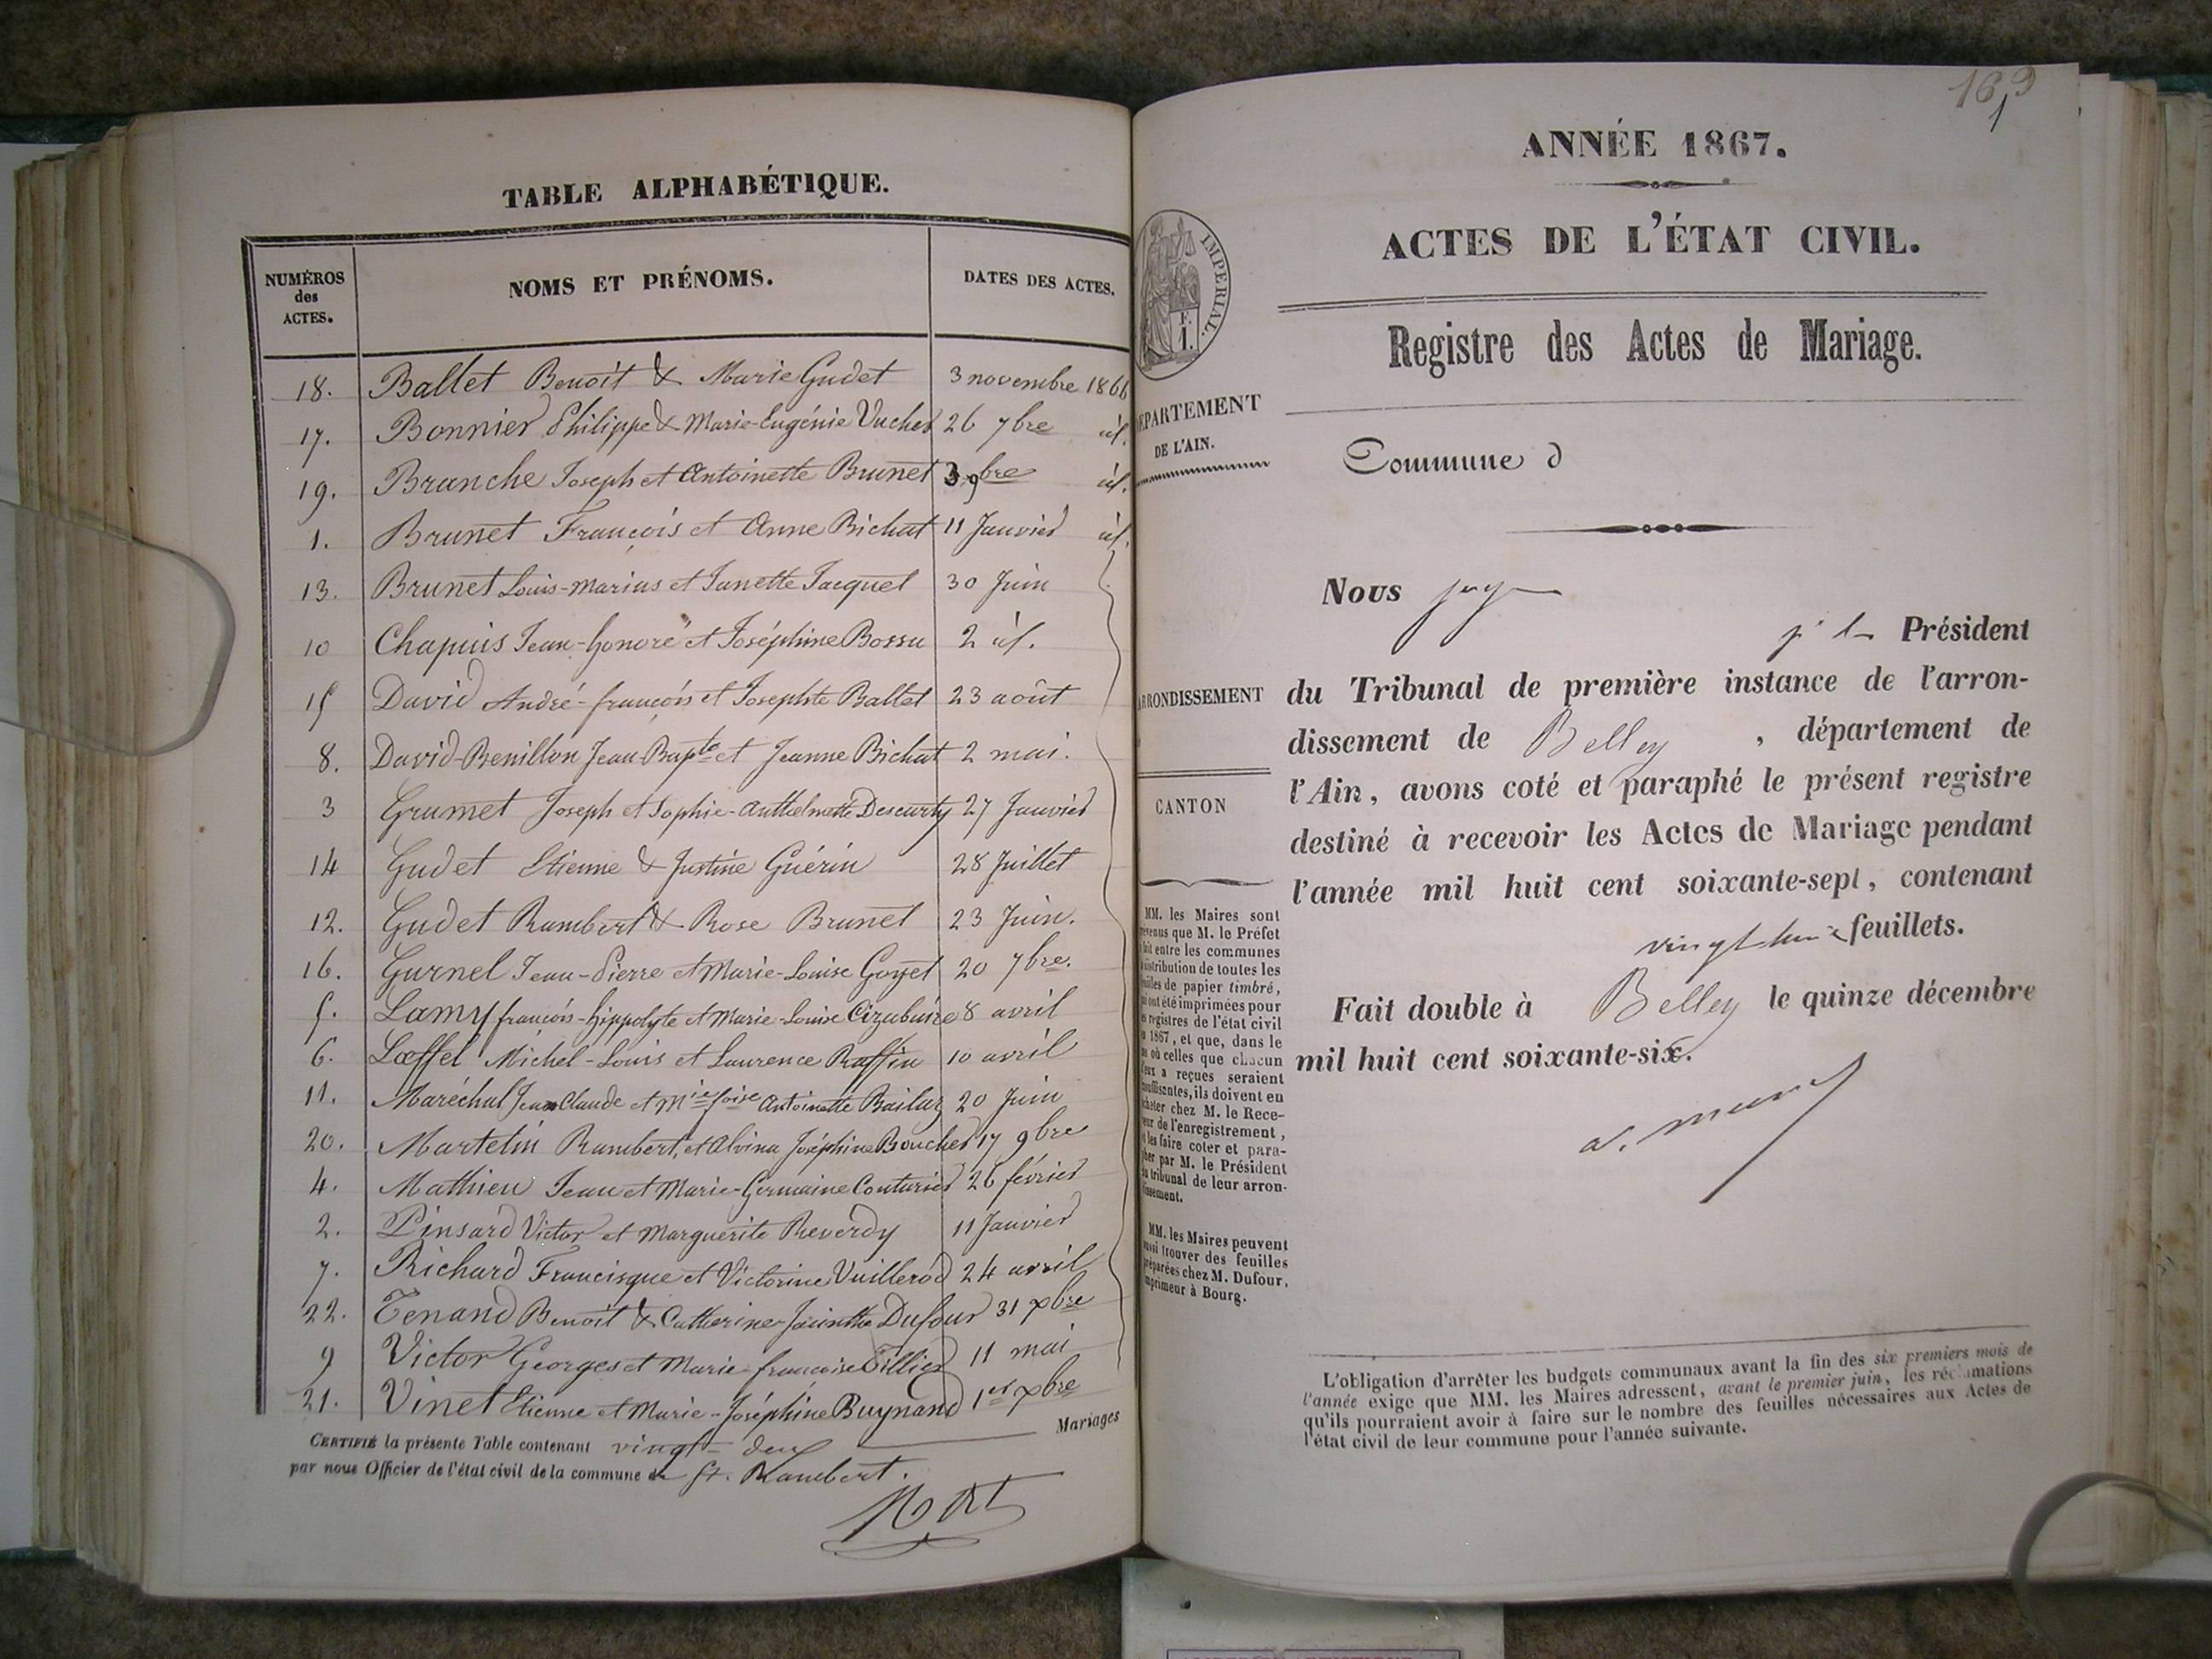 TABLE ALPHABÉTIQUE.
NUMÉROS des ACTES. NOMS ET PRÉNOMS. DATES DES ACTES.
18. Ballet Benoit & Marie Gudet 3 novembre 1866
17. Bonnier Philippe & Marie-Eugénie Vucher 26 7bre id.
19. Branche Joseph et Antoinette Brunet 3 9bre id.
1. Brunet François et Anne Bichat 11 Janvier id.
13. Brunet Louis-Marius et Janette Jacquet 30 Juin
10 Chapuis Jean-honoré et Joséphine Bossu 2 id.
15 David André-françois et Josephte Ballet 23 août
8. David-Benillon Jean-Bapte et Jeanne Bichat 2 mai.
3 Grumet Joseph et Sophie-Anthelmette Descurty 27 Janvier
14 Gudet Etienne & Justine Guérin 28 Juillet
12. Gudet Rambert & Rose Brunet 23 Juin.
16. Gurnel Jean-Pierre et Marie-Louise Goyet 20 7bre.
5. Lamy françois-hippolyte et Marie-Louise 8 avril
6. Lœffel Michel-Louis et Laurence Raffin 10 avril
11. Maréchal Jean Claude et Mie foise Antoinette 20 Juin
20. Martelin Rambert, et Alvina Joséphine Boucher 17 9bre
4. Mathieu Jean et Marie-Germaine Couturier 26 février
2. Pinsard Victor et Marguerite Reverdy 11 Janvier
7. Richard Francisque et Victorine Vuillerod 24 avril
22. Tenand Benoit & Catherine-Jacinthe Dufour 31 Xbre
9 Victor Georges et Marie-françoise Tillier 11 mai
21. Vinet Etienne et Marie-Joséphine Buynand 1er Xbre
CERTIFIÉ la présente Table contenant vingt-deux Mariages
par nous Officier de l'état civil de la commune de St. Rambert.
169
ANNÉE 1867.
ACTES DE L'ÉTAT CIVIL.
IMPERIAL.
F.
1.
Registre des Actes de Mariage.
DÉPARTEMENT
DE L'AIN.
Commune d
Nous
Président
ARRONDISSEMENT
du Tribunal de première instance de l'arron-
dissement de Belley, département de
CANTON
l'Ain, avons coté et paraphé le présent registre
destiné à recevoir les Actes de Mariage pendant
l'année mil huit cent soixante-sept, contenant
feuillets.
Fait double à Belley le quinze décembre
mil huit cent soixante-six.
MM. les Maires sont
prévenus que M. le Préfet
fait entre les communes
distribution de toutes les
feuilles de papier timbré,
qui ont été imprimées pour
les registres de l'état civil
de 1867, et que, dans le
cas où celles que chacun
d'eux a reçues seraient
insuffisantes, ils doivent en
acheter chez M. le Rece-
veur de l'enregistrement,
et les faire coter et para-
pher par M. le Président
du tribunal de leur arron-
dissement.
MM. les Maires peuvent
aussi trouver des feuilles
préparées chez M. Dufour,
imprimeur à Bourg.
L'obligation d'arrêter les budgets communaux avant la fin des six premiers mois de
l'année exige que MM. les Maires adressent, avant le premier juin, les réclamations
qu'ils pourraient avoir à faire sur le nombre des feuilles nécessaires aux Actes de
l'état civil de leur commune pour l'année suivante.